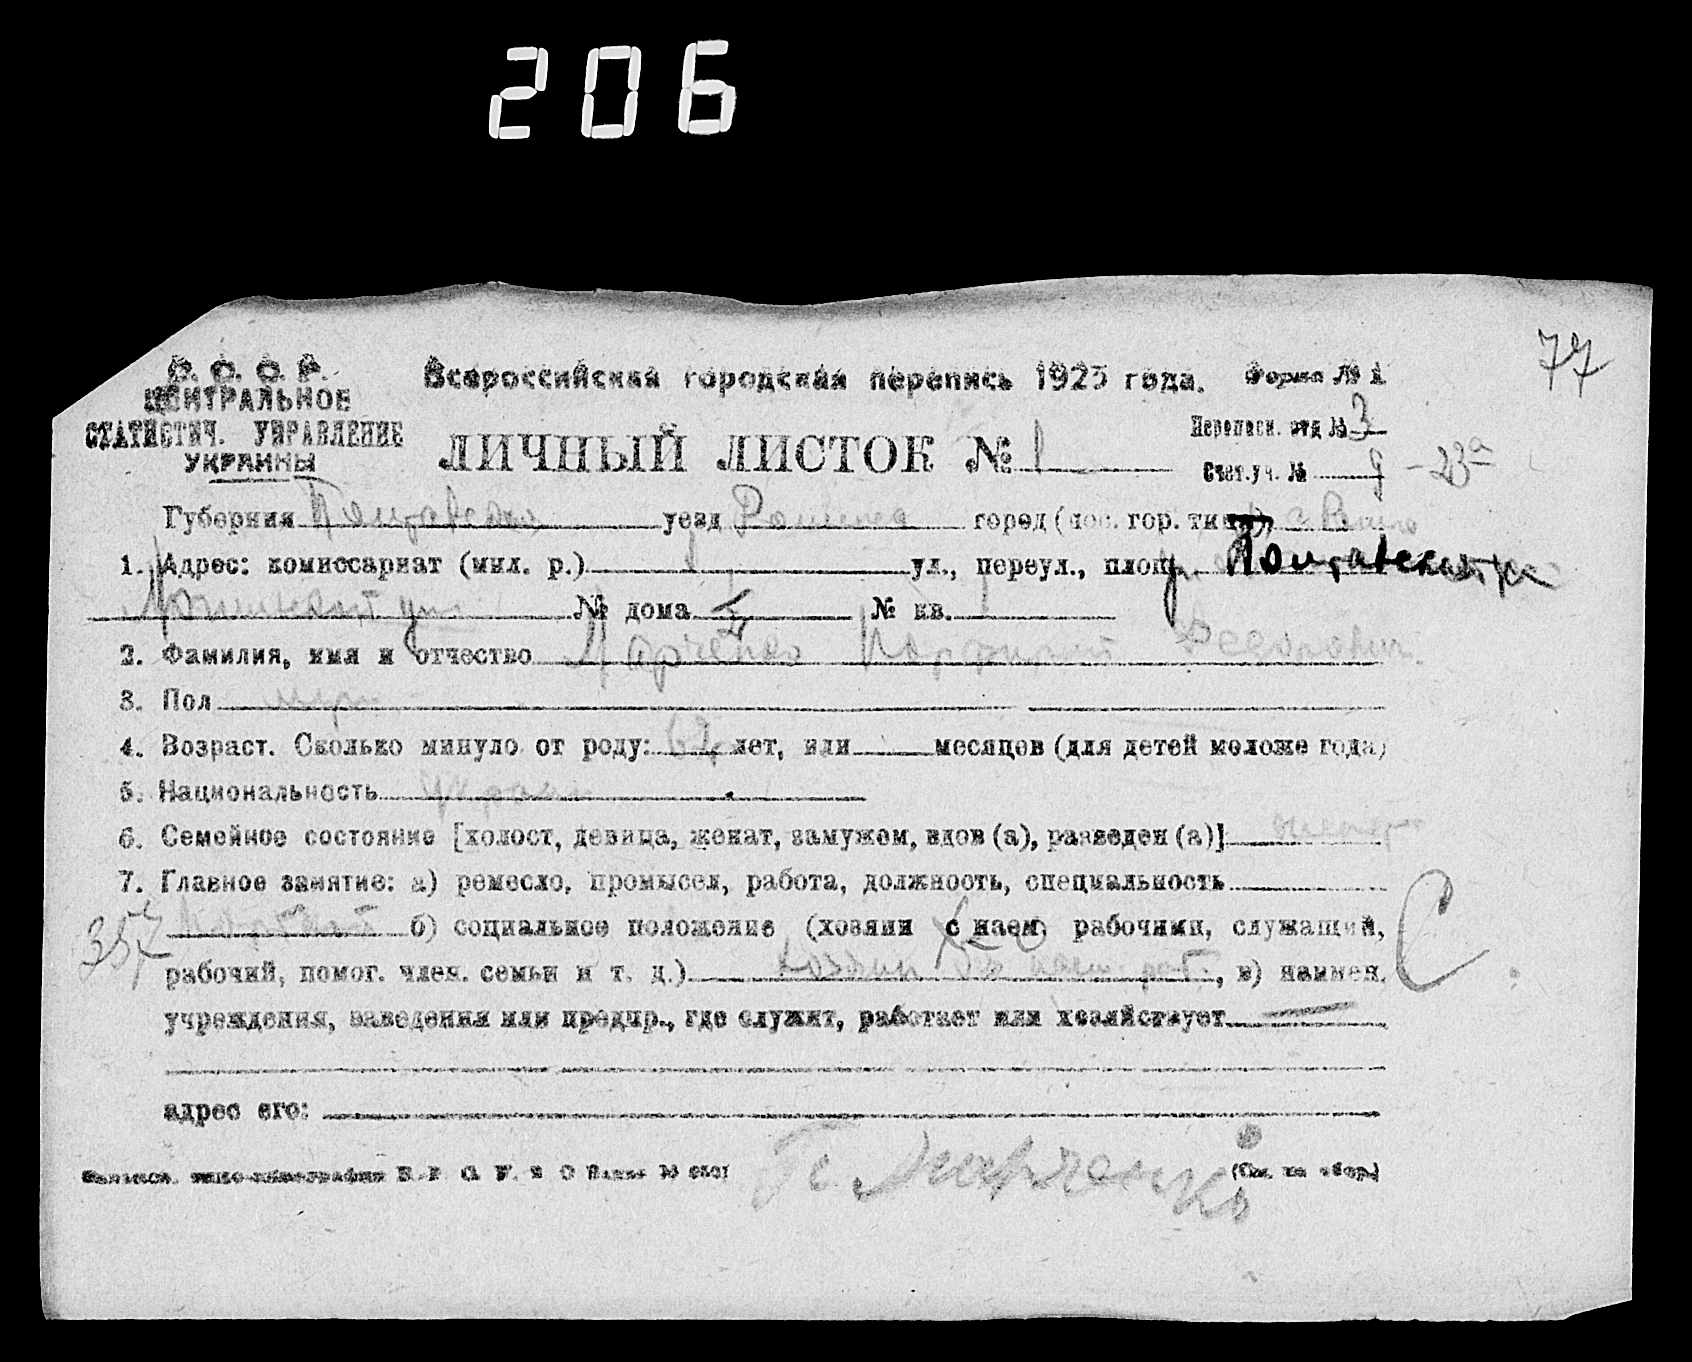 206
77
С. С. С. Р.
ЦЕНТРАЛЬНОЕ
СТАТИСТИЧ. УПРАВЛЕНИЕ
УКРАИНЫ
Всероссийская городская перепись 1923 года.
Форма № 1
ЛИЧНЫЙ ЛИСТОК № 1
Переписн. отд № 3
Счет. уч. № 9 - 23а
Губерния Полтавская уезд Ромны город (пос. гор. типа)
1. Адрес: комиссариат (мил. р.) 1 ул., переул., площ. Полтавская
№ дома № кв.
2. Фамилия, имя и отчество Марченко Порфирий Федорович
3. Пол муж
4. Возраст. Сколько минуло от роду: лет, или месяцев (для детей моложе года)
5. Национальность украин
6. Семейное состояние [холост, девица, женат, замужем, вдов (а), разведен (а)] женат
7. Главное занятие: а) ремесло, промысел, работа, должность, специальность
357
б) социальное положение (хозяин с наем. рабочими, служащий,
рабочий, помог. член. семьи и т. д.) хозяин без наем раб., в) наимен.
С
учреждения, заведения или предпр., где служит, работает или хозяйствует —
адрес его:
(См. на обор.)
П. Марченко